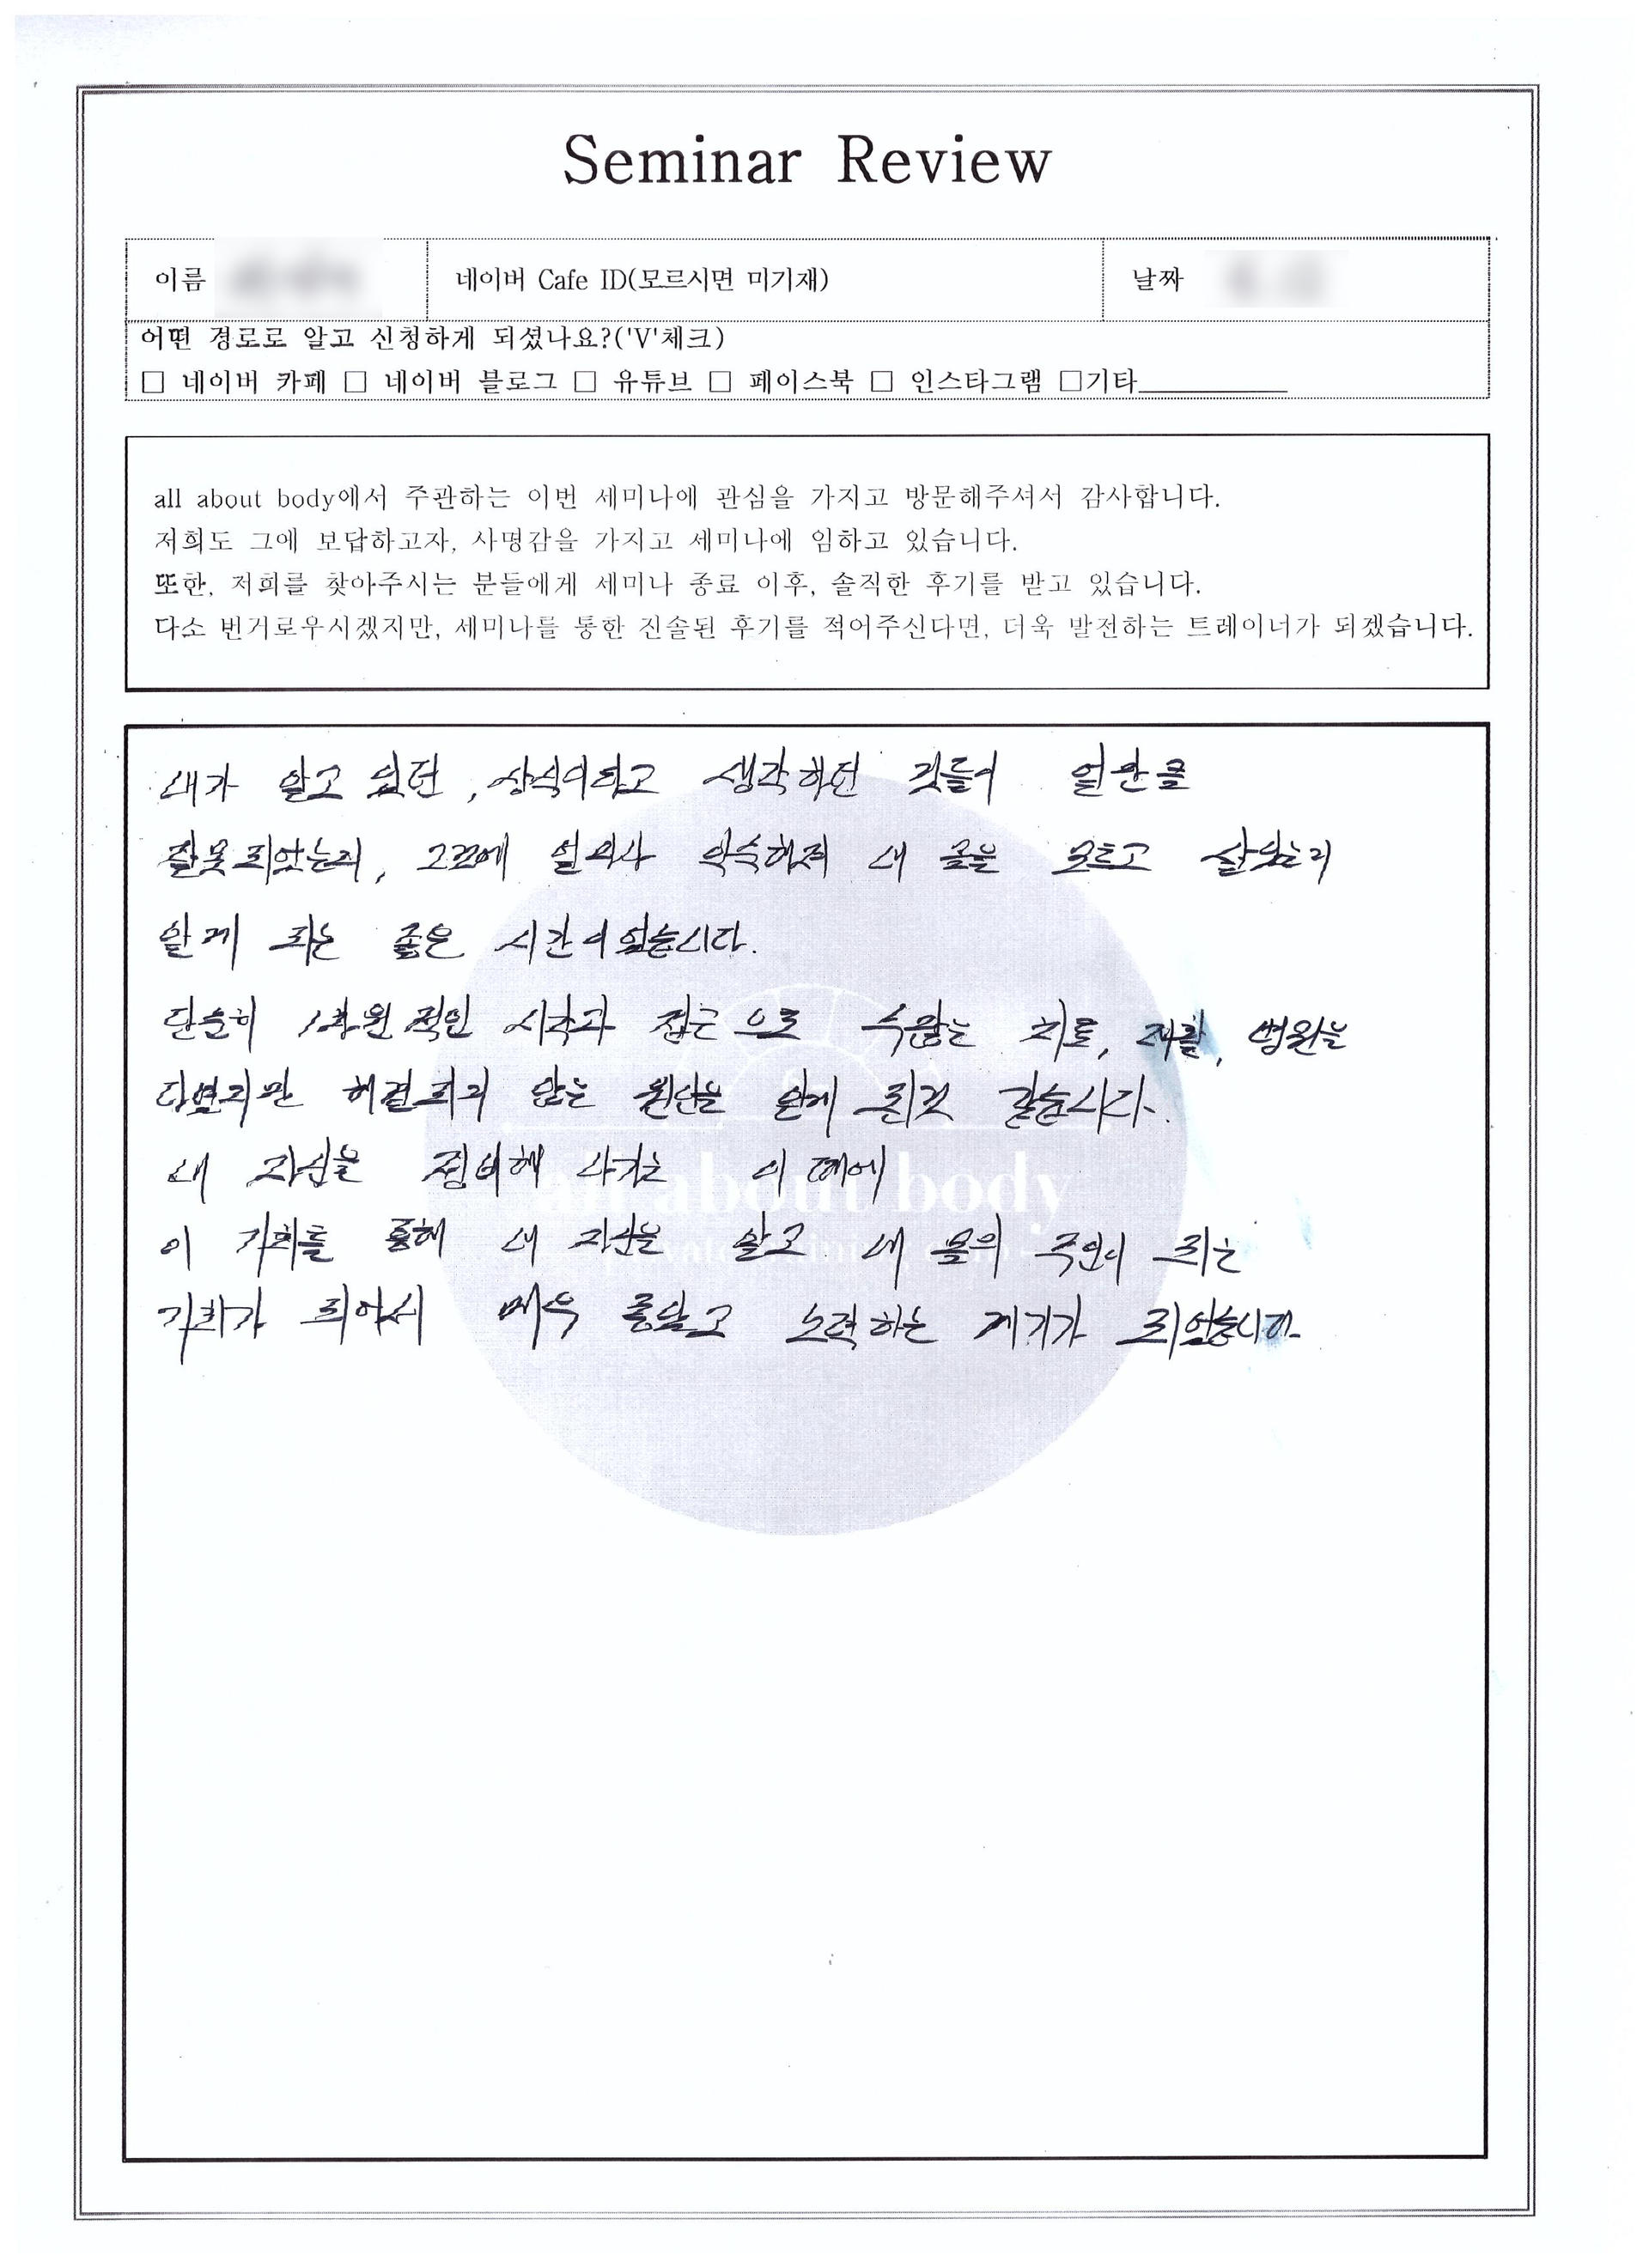 Seminar Review
이름 네이버 Cafe ID(모르시면 미기재) 날짜
어떤 경로로 알고 신청하게 되셨나요?('V'체크)
□ 네이버 카페 □ 네이버 블로그 □ 유튜브 □ 페이스북 □ 인스타그램 □기타
all about body에서 주관하는 이번 세미나에 관심을 가지고 방문해주셔서 감사합니다.
저희도 그에 보답하고자, 사명감을 가지고 세미나에 임하고 있습니다.
또한, 저희를 찾아주시는 분들에게 세미나 종료 이후, 솔직한 후기를 받고 있습니다.
다소 번거로우시겠지만, 세미나를 통한 진솔된 후기를 적어주신다면, 더욱 발전하는 트레이너가 되겠습니다.
내가 알고 있던, 상식이라고 생각하던 것들이 얼만큼
잘못되었는지, 그것에 얼마나 익숙해져 내 몸을 모르고 살았는지
알게 되는 좋은 시간이었습니다.
단순히 1차원적인 시각과 접근으로 수많은 치료, 재활, 병원을
다녔지만 해결되지 않는 원인을 알게 된것 같습니다.
내 자신을 정비해 나가는 이 때에
이 기회를 통해 내 자신을 알고 내 몸의 주인이 되는
기회가 되어서 매우 좋았고 노력하는 계기가 되었습니다.
all about body